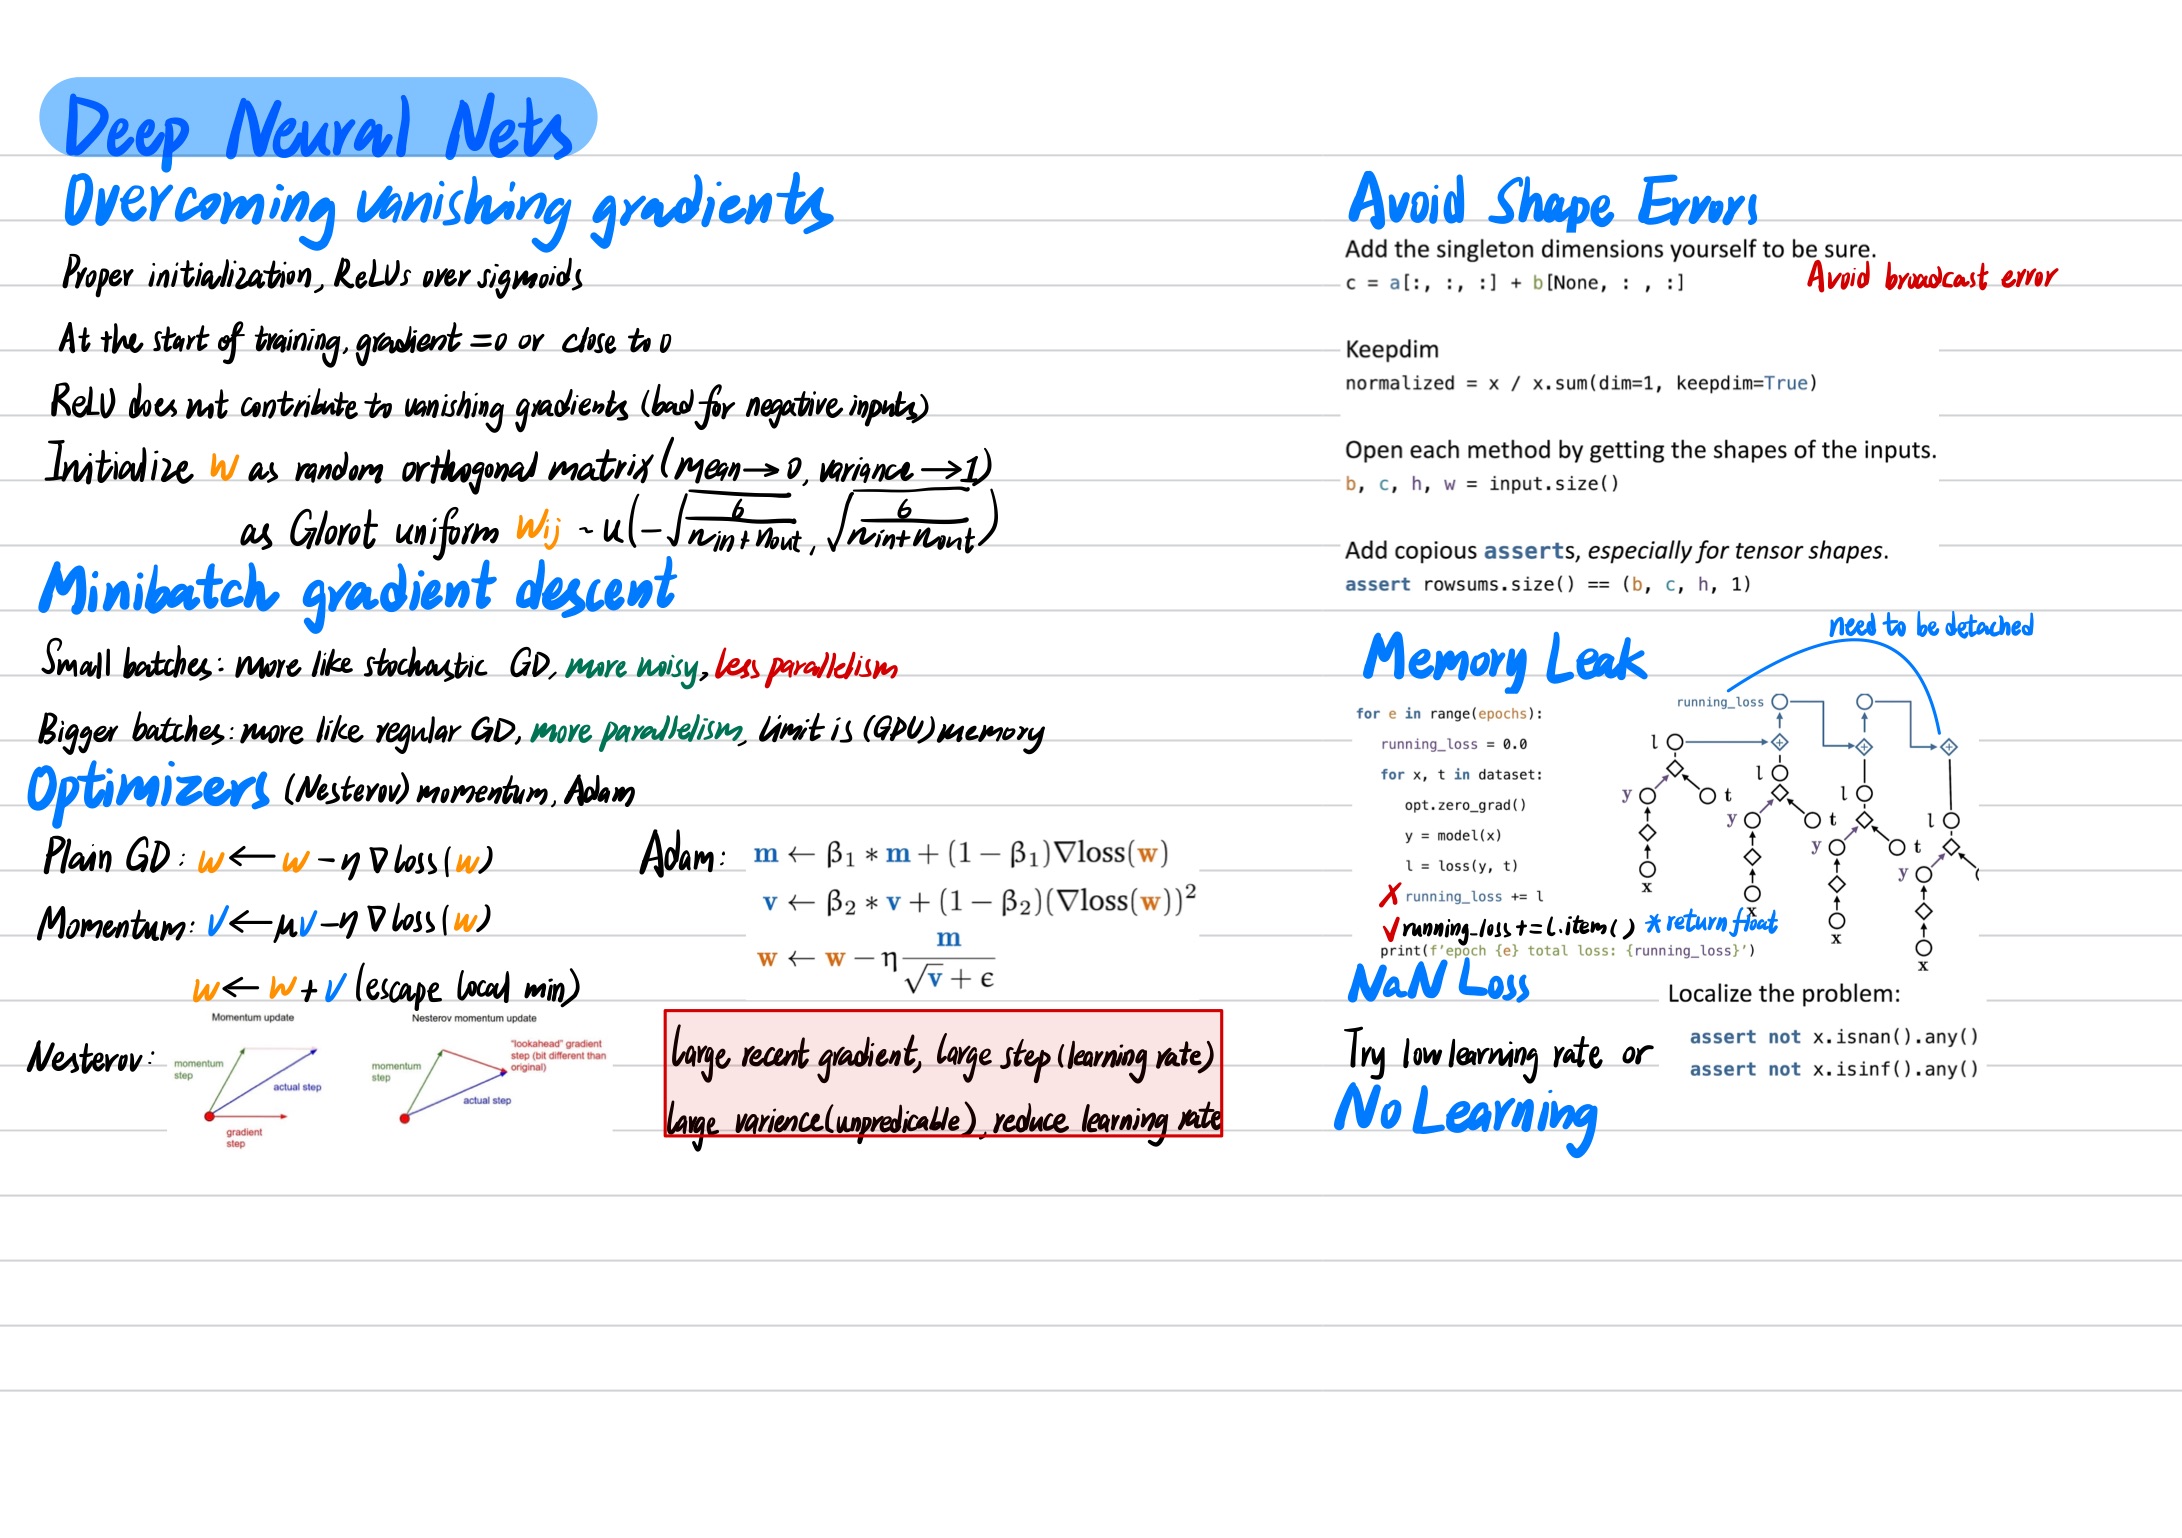 Deep Neural Nets
Overcoming vanishing gradients
Proper initialization, ReLUs over sigmoids
At the start of training, gradient = 0 or close to 0
ReLU does not contribute to vanishing gradients (bad for negative inputs)
Initialize W as random orthogonal matrix (mean → 0, variance → 1)
as Glorot uniform Wij ~ u(-√(6/(nin+nout)), √(6/(nin+nout)))
Minibatch gradient descent
Small batches: more like stochastic GD, more noisy, less parallelism
Bigger batches: more like regular GD, more parallelism, limit is (GPU) memory
Optimizers (Nesterov) momentum, Adam
Plain GD: w ← w - η ∇ loss(w)
Momentum: v ← μv - η ∇ loss(w)
w ← w + v (escape local min)
Nesterov:
Momentum update
momentum step
actual step
gradient step
Nesterov momentum update
momentum step
"lookahead" gradient step (bit different than original)
actual step
Adam: m ← β1 * m + (1 − β1)∇loss(w)
v ← β2 * v + (1 − β2)(∇loss(w))²
w ← w − η m/(√v + ϵ)
Large recent gradient, large step (learning rate)
large varience (unpredicable), reduce learning rate
Avoid Shape Errors
Add the singleton dimensions yourself to be sure.
c = a[:, :, :] + b[None, : , :]
Avoid broadcast error
Keepdim
normalized = x / x.sum(dim=1, keepdim=True)
Open each method by getting the shapes of the inputs.
b, c, h, w = input.size()
Add copious asserts, especially for tensor shapes.
assert rowsums.size() == (b, c, h, 1)
Memory Leak
need to be detached
for e in range(epochs):
running_loss = 0.0
for x, t in dataset:
opt.zero_grad()
y = model(x)
l = loss(y, t)
✗ running_loss += l
✓ running_loss += l.item() * return float
print(f'epoch {e} total loss: {running_loss}')
running_loss
l
y t
x
l
y t
x
l
y t
x
l
y
x
NaN Loss
Try low learning rate or
Localize the problem:
assert not x.isnan().any()
assert not x.isinf().any()
No Learning